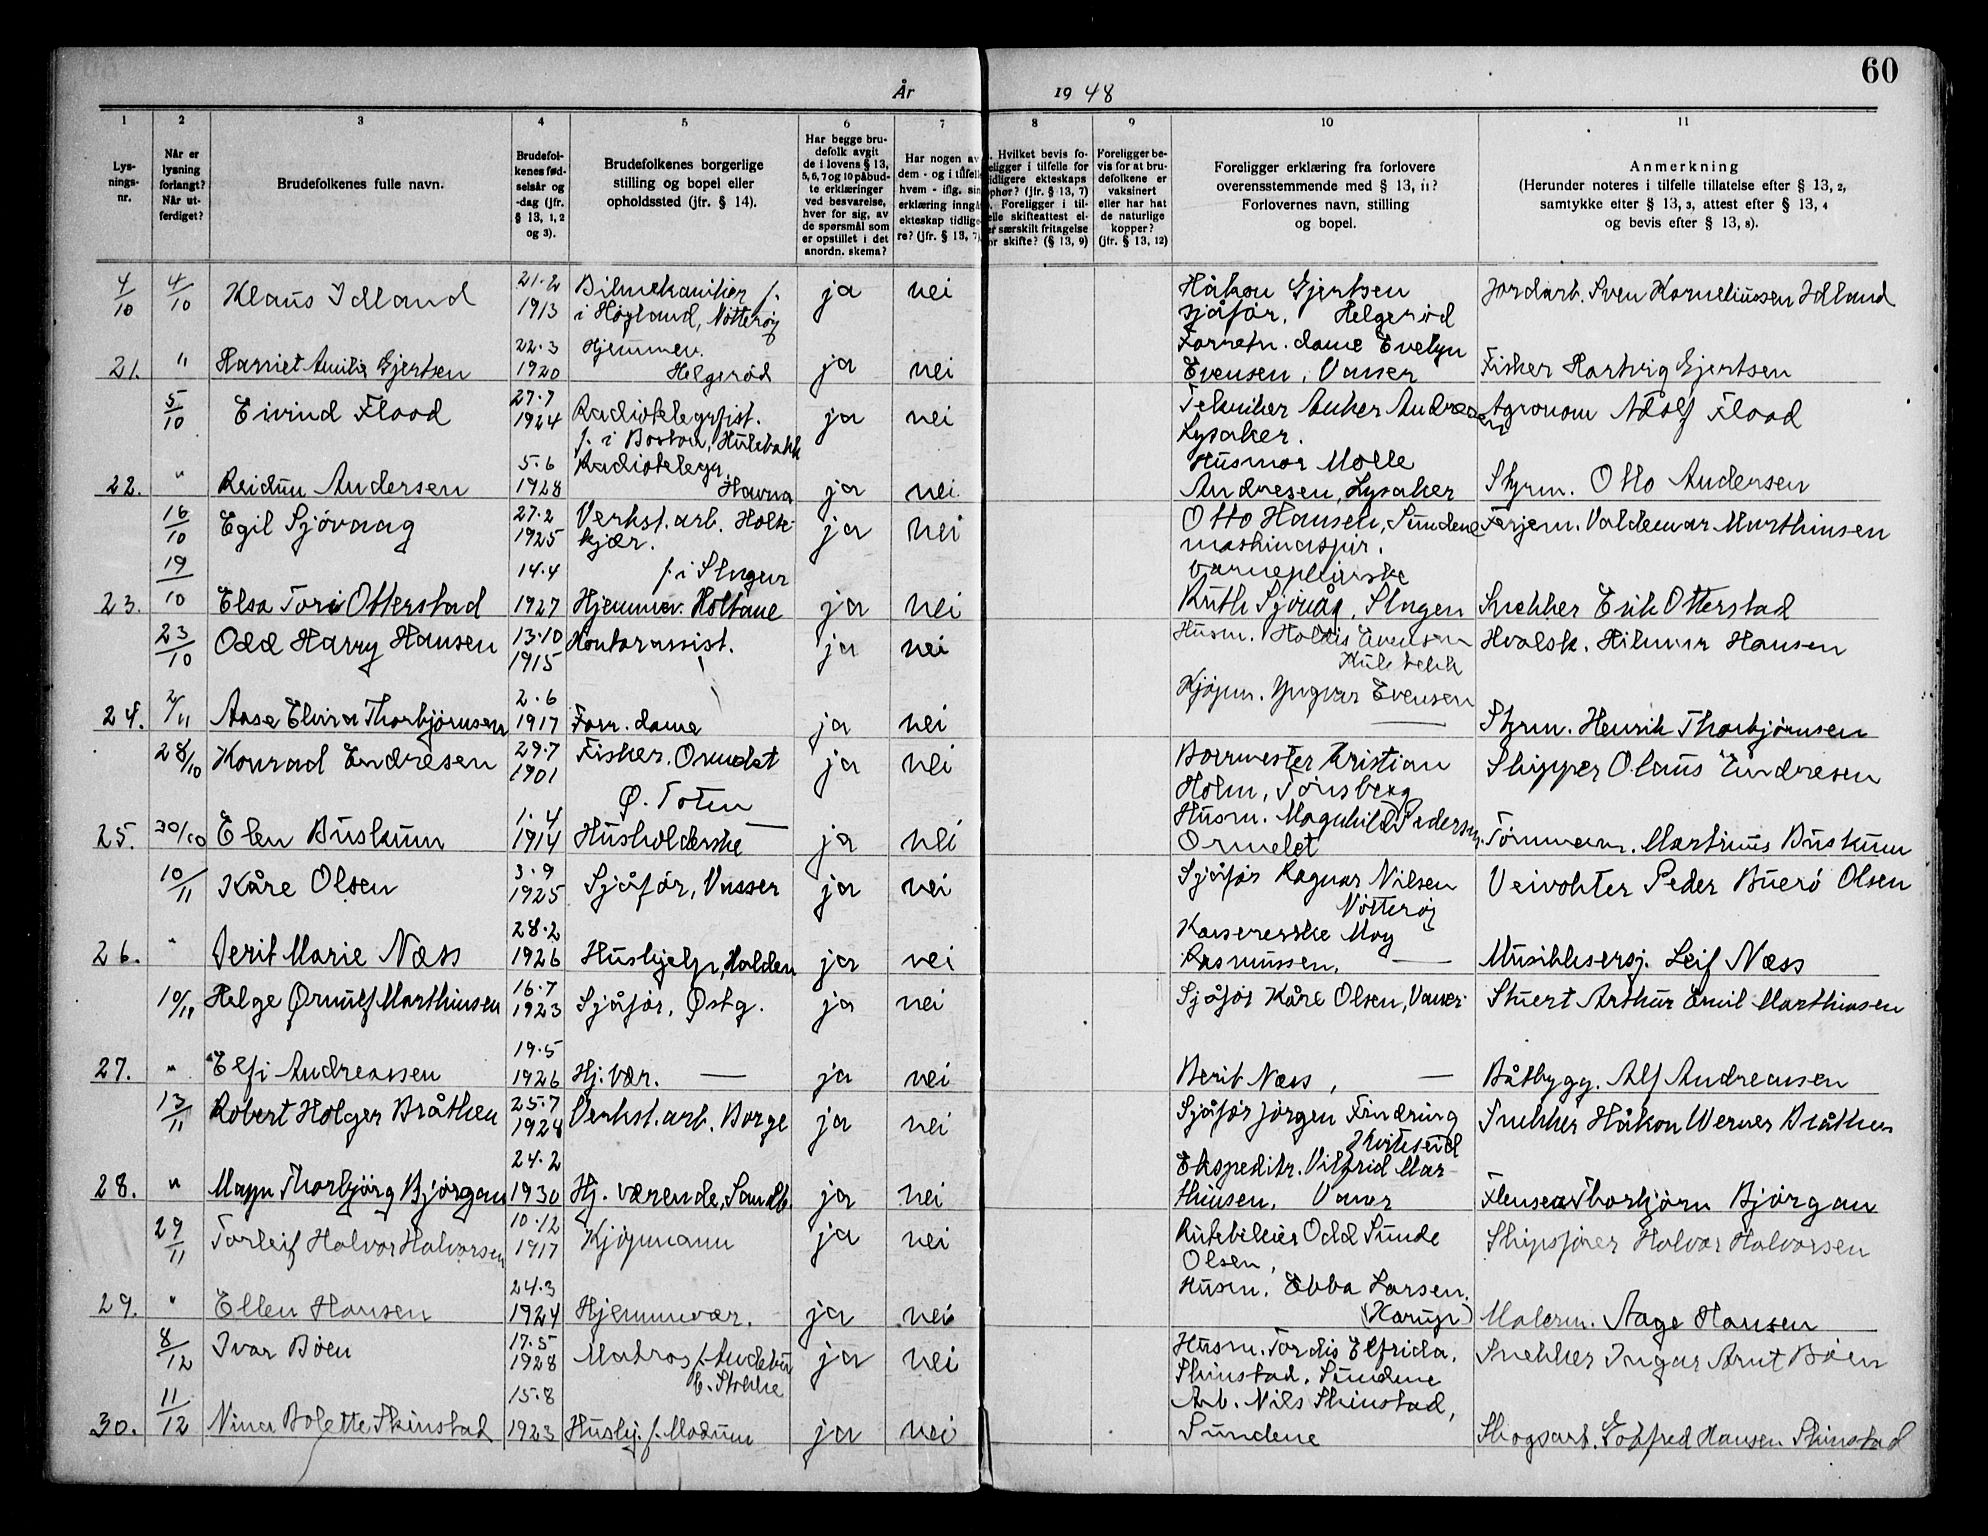 60
År 1948
1 2 3 4 5 6 7 8 9 10 11
Lys-
nings-
nr.
Når er
lysning
forlangt?
Når ut-
ferdiget?
Brudefolkenes fulle navn.
Brudefol-
kenes fød-
selsår og
-dag (jfr.
§ 13, 1, 2
og 3).
Brudefolkenes borgerlige
stilling og bopel eller
opholdssted (jfr. § 14).
Har begge bru-
defolk avgit
de i lovens § 13,
5, 6, 7 og 10 påbud-
te erklæringer
ved besvarelse,
hver for sig, av
de spørsmål som
er opstillet i det
anordn. skema?
Har nogen av
dem - og i tilfelle
hvem - iflg. sin
erklæring inngåt
ekteskap tidlige-
re? (jfr. § 13, 7)
Hvilket bevis fo-
religger i tilfelle for
tidligere ekteskaps
ophør? (jfr. § 13, 7)
Foreligger i til-
felle skifteattest el-
er særskilt fritagelse
for skifte? (§ 13, 9)
Foreligger be-
vis for at bru-
defolkene er
vaksinert
eller har hat
de naturlige
kopper?
(jfr. § 13, 12)
Foreligger erklæring fra forlovere
overensstemmende med § 13, 11?
Forlovernes navn, stilling
og bopel.
Anmerkning
(Herunder noteres i tilfelle tillatelse efter § 13, 2,
samtykke efter § 13, 3, attest efter § 13, 4
og bevis efter § 13, 8).
4/10 4/10 Klaus Idland 21.2 1913 Bilmekaniker f.
i Høyland, Nøtterøy ja nei Håkon Gjertsen
sjåfør, Helgerød Jordarb. Sven Korneliussen Idland
21. " Harriet Amilie Gjertsen 22.3 1920 Hjemmev.
Helgerød ja nei Forretn. dame Evelyn
Evensen, Vasser Fisker Hartvig Gjertsen
5/10 Eivind Flood 27.7 1924 Radiotelegrfist.
f. i Boston, Hulebakk ja nei Tekniker Anker Andresen
Lysaker. Agronom Adolf Flood
22. " Reidun Andersen 5.6 1928 Radiotelegr.
Havna ja nei Husmor Molle
Andresen, Lysaker Styrm. Otto Andersen
16/10 Egil Sjövaag 27.2 1925 Verkst. arb. Holte-
kjær. ja nei Otto Hansen, Sundene
maskinaspir. Ferjem. Valdemar Marthinsen
19/10
23. Elsa Tori Otterstad 14.4 1927 f. i Stngen
Hjemmev. Holtane ja nei
Ruth Sjövåg, Stngen Snekker Erik Otterstad
23/10 Odd Harry Hansen 13.10 1915 Kontorassist. ja nei Husm. Holdis Evensen
Hulebakk Hvalsk. Hilmar Hansen
24. 2/11 Aase Elvira Thorbjörnsen 2.6 1917 Forr. dame ja nei Kjøpm. Yngvar Evensen
— Styrm. Henrik Thorbjörnsen
28/10 Konrad Endresen 29.7 1901 Fisker. Ormelet ja nei Borrmester Kristian
Holm, Tönsberg Skipper Olaus Endresen
25. 30/10 Elen Buskum 1.4 1914 Ø. Toten
Husholderske ja nei Husm. Magnhild Pedersen.
Ormelet Tömmerm. Martinus Buskum
10/11 Kåre Olsen 3.9 1925 Sjåför, Vasser ja nei Sjåför Ragnar Nilsen
Nötteröy Veivokter Peder Buerö Olsen
26. " Berit Marie Næss 28.2 1926 Hushjelp, Halden ja nei Kassererske May
Rasmussen, — Musikkhusersj. Leif Næss
10/11 Helge Ørnulf Marthinsen 16.7 1923 Sjåför, Østg. ja nei Sjåför Kåre Olsen, Vasser. Stuert Arthur Emil Marthinsen
27. " Elfi Andreassen 19.5 1926 Hj. vær. — ja nei Berit Næss, — Båtbygg. Alf Andreassen
13/11 Robert Holger Bråthen 25.7 1928 Verkst. arb. Borge ja nei Sjåför Jörgen Findring
Snekker Håkon Werner Bråthen
28. " Thorbjörg Björgan 24.2 1930 Hj. værende, Sandb. ja nei Ekspeditr. Vilfrid Mar-
thinsen, Vasser Flenser Thorbjörn Björgan
29/11 Torleif Halvor Halvorsen 10.12 1917 Kjöpmann ja nei Rutebileier Odd Sunde
Olsen, Skipsfører Halvor Halvorsen
29. " Ellen Hansen 24.3 1924 Hjemmevær. ja nei Husm. Ebba Larsen.
(Korup) Malerm. Aage Hansen
8/12 Ivar Böen 17.5 1928 Matros f. Andebu
b. Stokke ja nei Husm. Tordis Elfrida,
Skinstad, Sundene Snekker Ingar Arnt Böen
30. 11/12 Nina Bolette Skinstad 15.8 1923 Hushj. f. Modum ja nei Arb. Nils Skinstad,
Sundene Skogsarb. Gotfred Hansen Skinstad